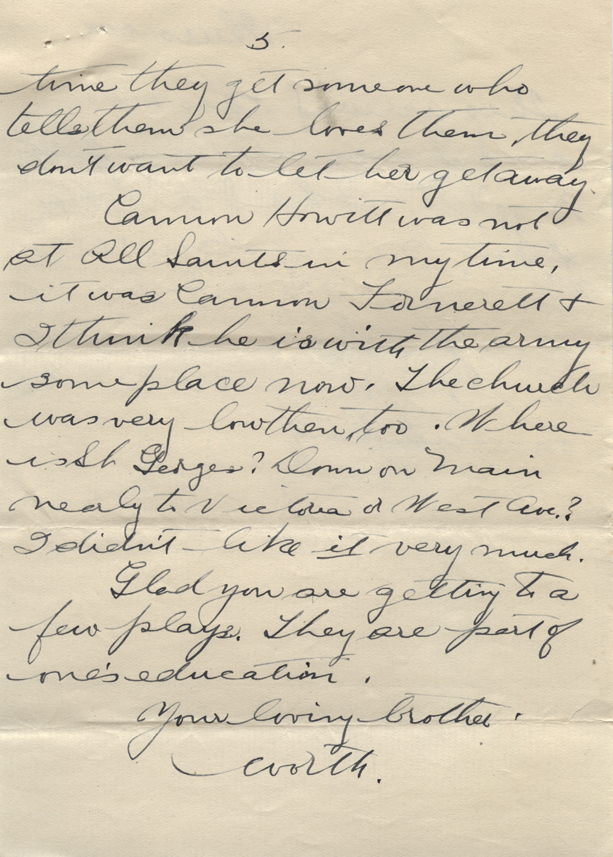 5.
time they get someone who
tells them she loves them, they
don't want to let her get away.
Cannon Howitt was not
at All Saints in my time,
it was Cannon Fornerett &
I think he is with the army
some place now. The church
was very low then, too. Where
is St Gerges? Down on Main
nearly to Victoria or West Ave.?
I didn't like it very much.
Glad you are getting to a
few plays. They are part of
one's education.
Your loving brother.
Worth.